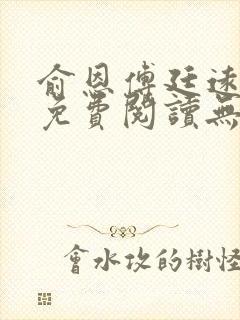 俞恩傅廷远
免費閱讀無
會水攻的樹怪